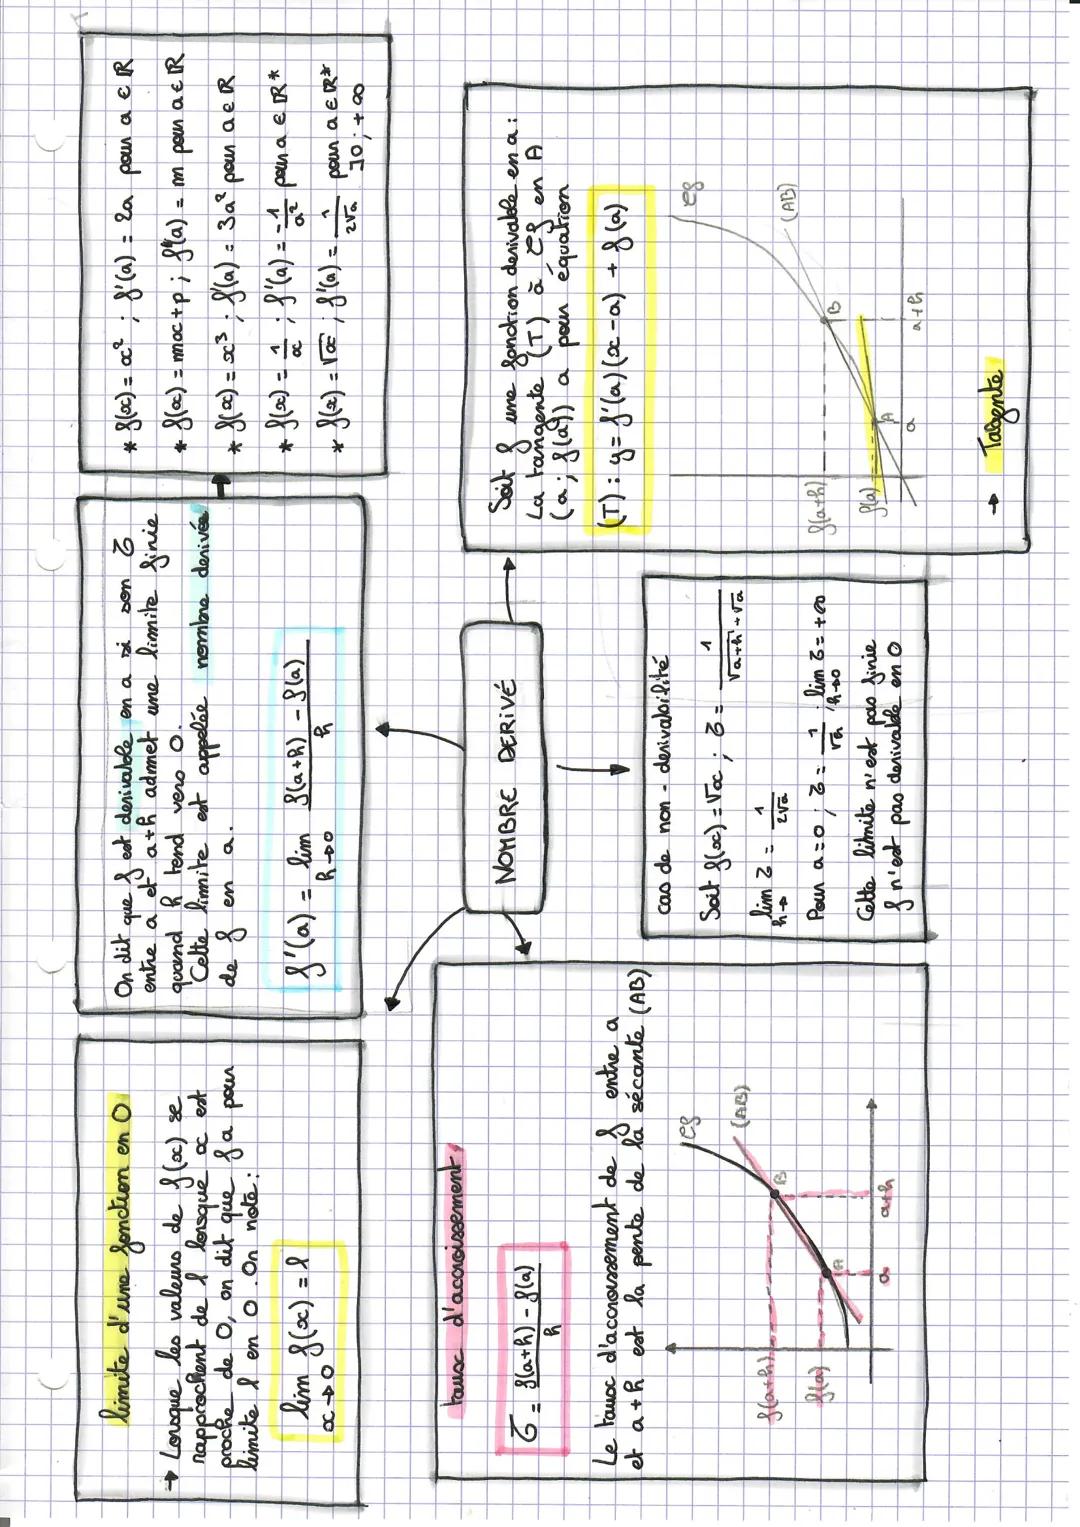 limite d'une fonction en 0
→ Lorsque les valeurs de f(x) se
rapprochent de l lorsque x est
proche de 0, on dit que f a pour
limite l en 0. On note :
lim f(x) = l
x→0
On dit que f est derivable en a si son τ
entre a et a+h admet une limite finie
quand h tend vers 0.
Cette limite est appelée nombre derivée
de f en a.
f'(a) = lim f(a+h) - f(a)
h→0 h
* f(x) = x² ; f'(a) = 2a pour a ∈ ℝ
* f(x) = mx+p ; f'(a) = m pour a ∈ ℝ
* f(x) = x³ ; f'(a) = 3a² pour a ∈ ℝ
* f(x) = 1/x ; f'(a) = -1/a² pour a ∈ ℝ*
* f(x) = √x ; f'(a) = 1/2√a pour a ∈ ℝ*
]0 ; +∞
NOMBRE DERIVÉ
taux d'accroissement
τ = f(a+h) - f(a)
h
Le taux d'accroissement de f entre a
et a+h est la pente de la sécante (AB)
Cf
(AB)
B
A
f(a+h)
f(a)
a
a+h
cas de non-derivabilité
Soit f(x) = √x ; τ = 1/√a+h + √a
lim τ = 1/2√a
h→
Pour a=0 ; τ = 1/√a ; lim τ = +∞
h→0
Cette limite n'est pas finie
f n'est pas derivable en 0
Soit f une fonction derivable en a :
La tangente (T) à Cf en A
(a ; f(a)) a pour équation
(T) : y = f'(a)(x-a) + f(a)
Cf
(AB)
B
A
f(a+h)
f(a)
a
a+h
→ Tangente